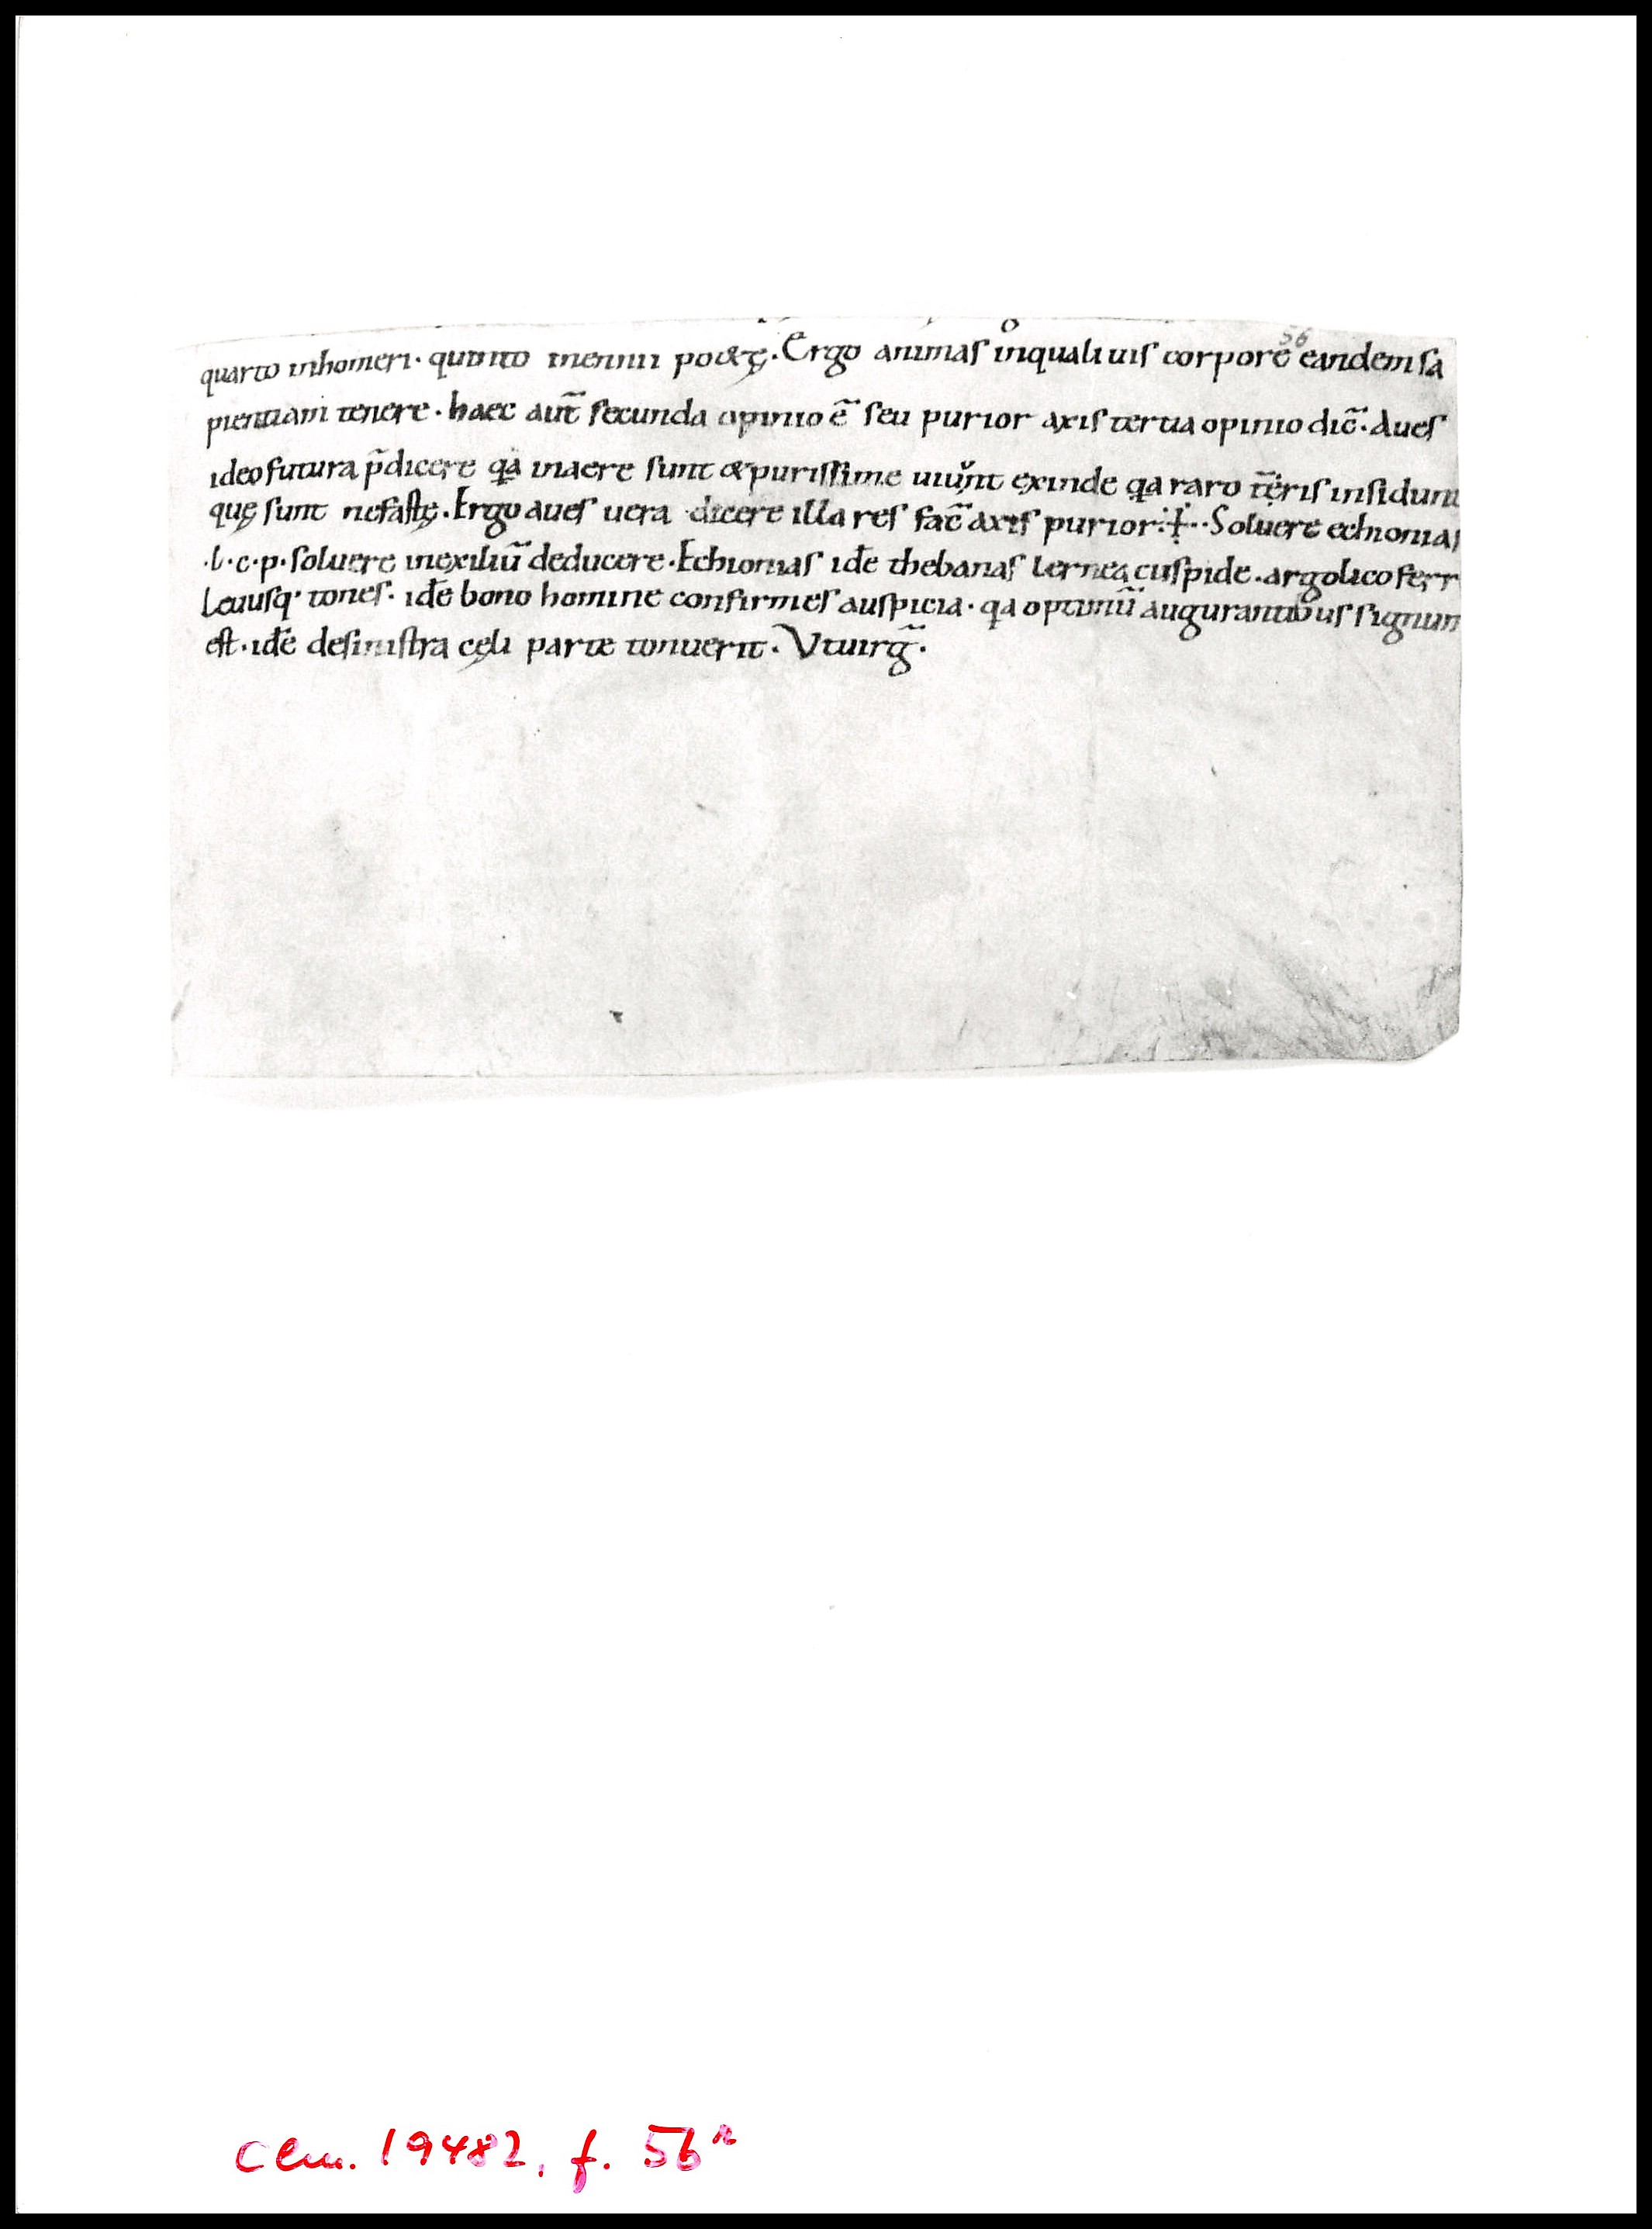 56
quarto inhomeri· quinto inennii po&ę· Ergo animas inqualiuis corpore eandem sa
pientiam tenere· haec aut̄ secunda opinio ē seu purior axis tertia opinio dic̄· Aues
ideo futura p̄dicere qa inaere sunt &purissime uiu̇nt exinde qa raro tēris insidunt
quę sunt nefastę· Ergo aues uera dicere illa res fac̄ axis purior Soluere echionias
·l·c·p· soluere inexiliū deducere· Echionias idē thebanas lernea cuspide· argolico ferr
Leuusq· tones· idē bono homine confirmes auspicia· qa optimū augurantibus signum
est· idē desinistra cęli parte tonuerit· Vtuirḡ·
clm. 19482, f. 56r